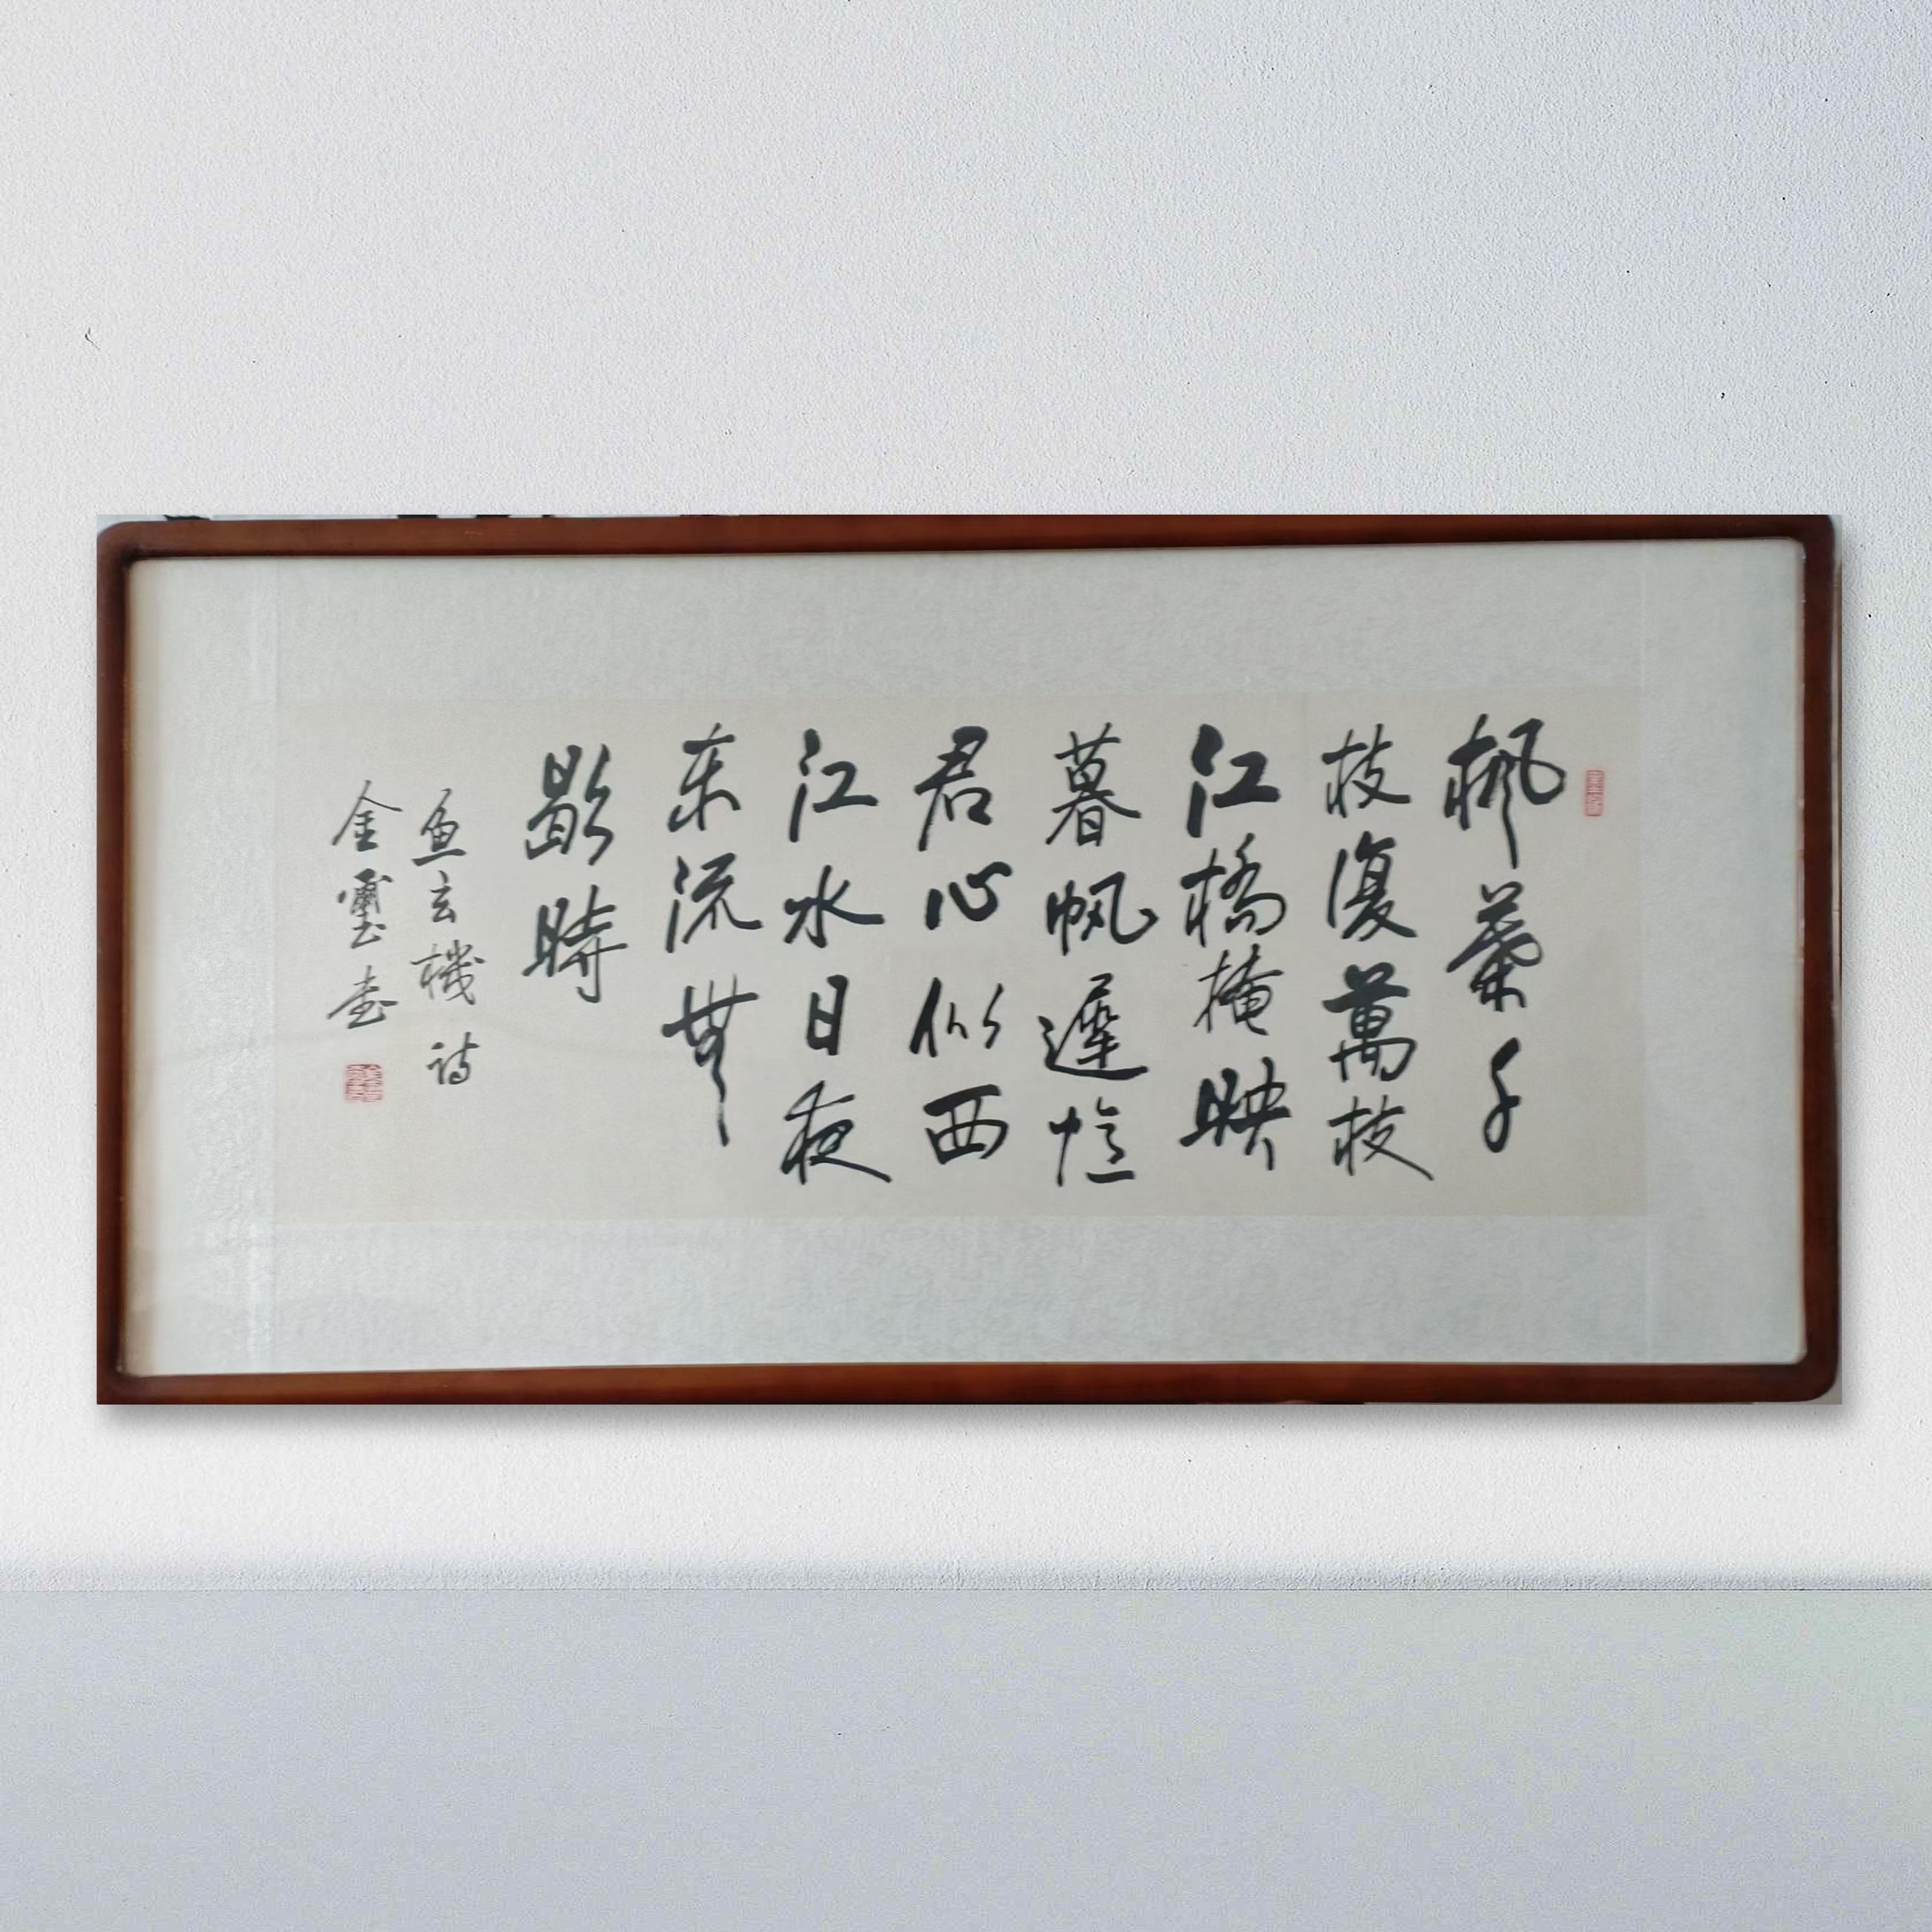 楓葉千
枝復萬枝
江橋掩映
暮帆遲憶
君心似西
江水日夜
東流無
歇時
魚玄機詩
金書